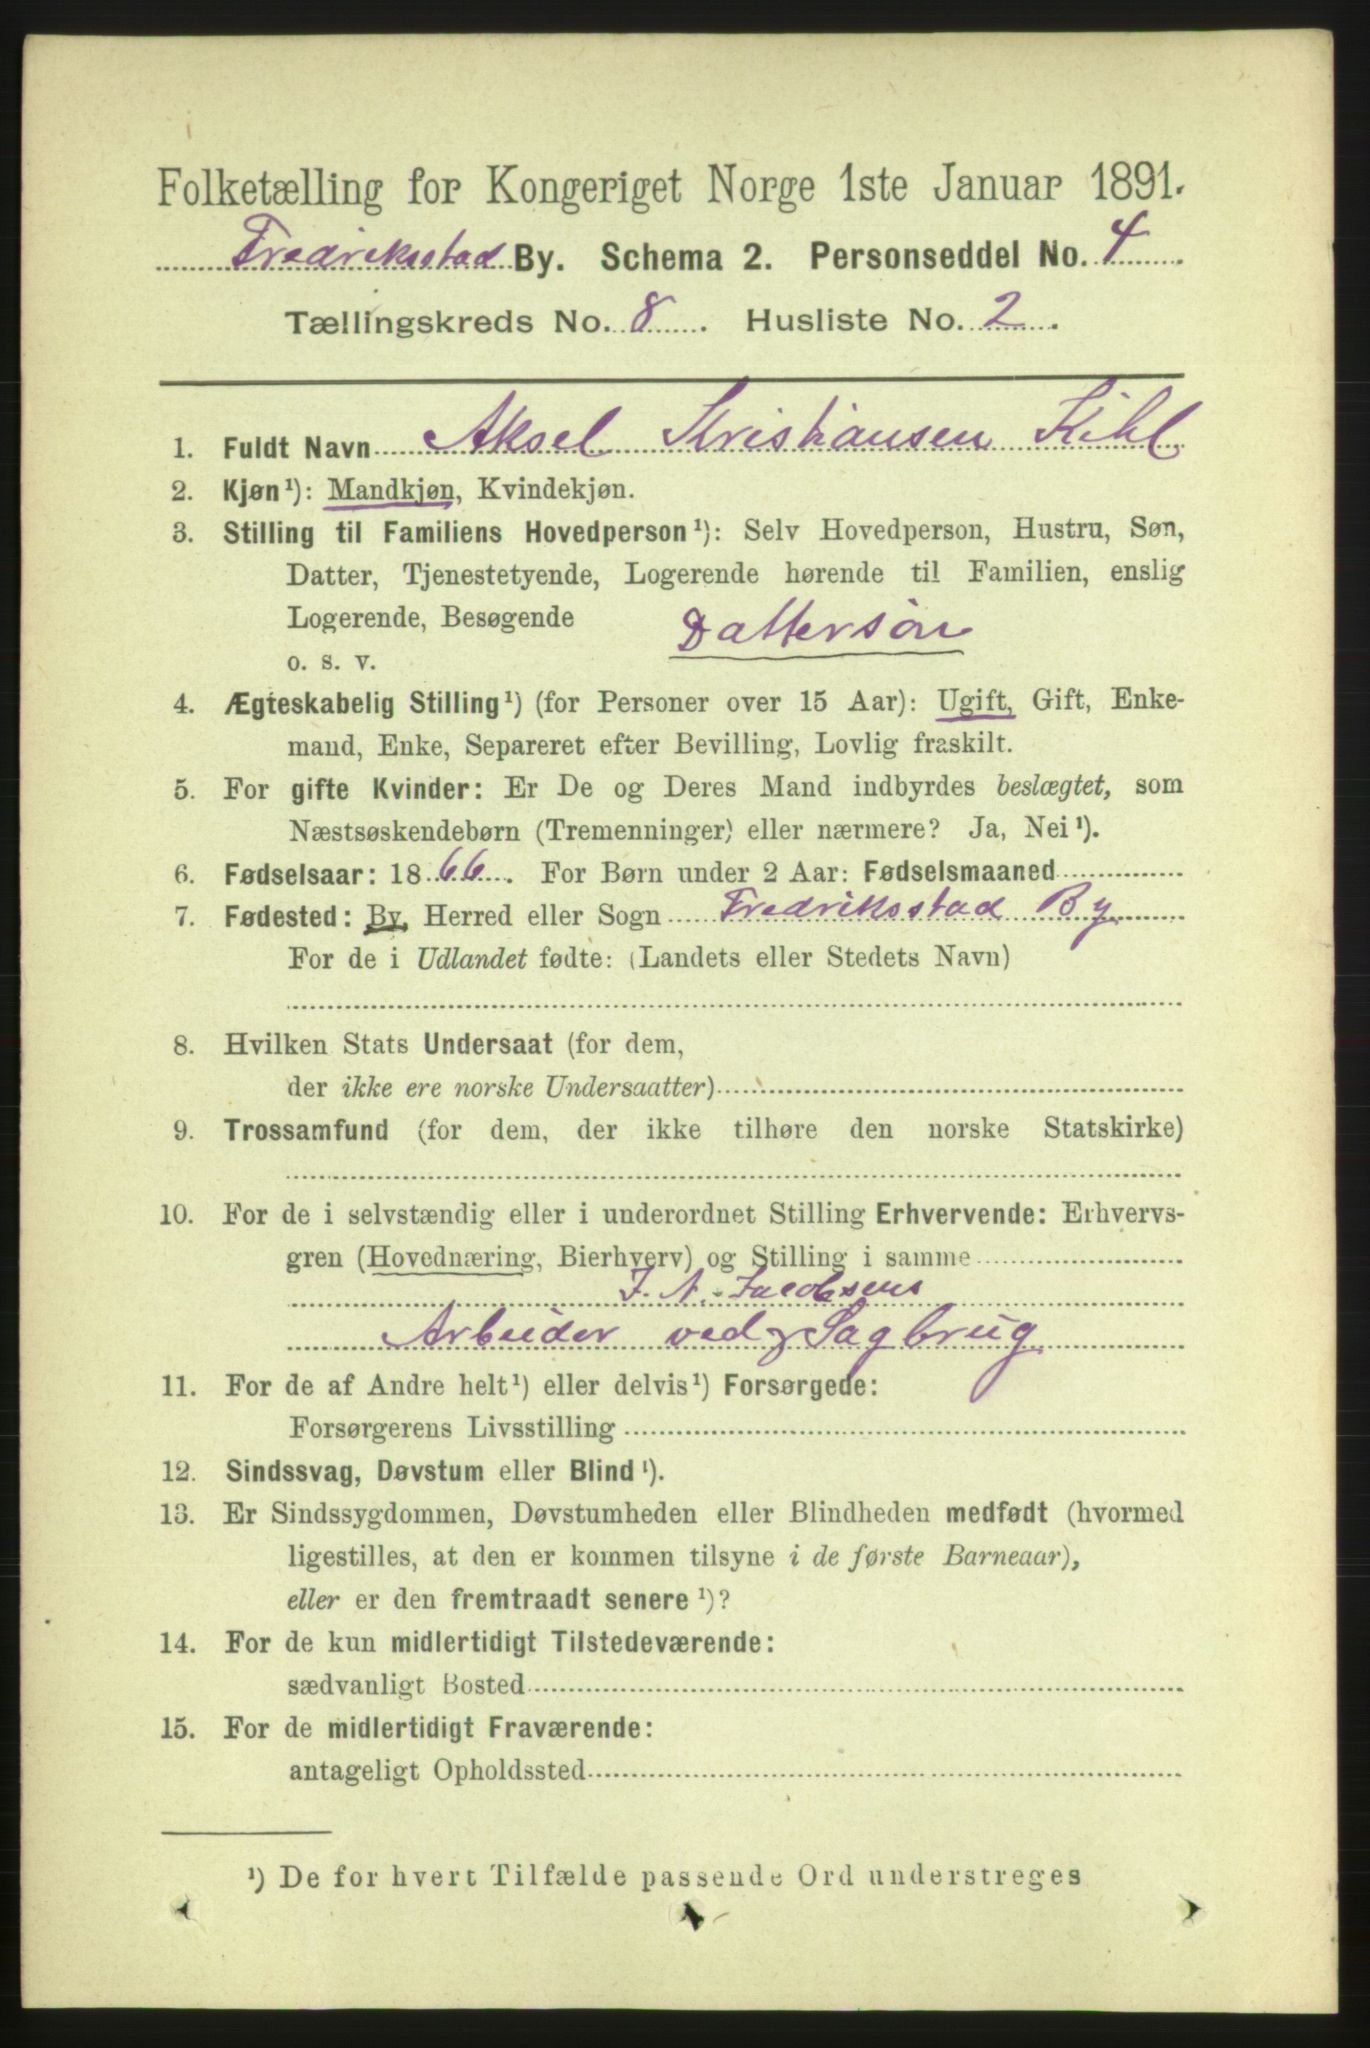 Folketælling for Kongeriget Norge 1ste Januar 1891.
Fredriksstad By. Schema 2. Personseddel No. 4
Tællingskreds No. 8. Husliste No. 2.
1. Fuldt Navn Aksel Kristiansen Kihl
2. Kjøn¹): Mandkjøn, Kvindekjøn.
3. Stilling til Familiens Hovedperson¹): Selv Hovedperson, Hustru, Søn,
Datter, Tjenestetyende, Logerende hørende til Familien, enslig
Logerende, Besøgende Dattersön
o. s. v.
4. Ægteskabelig Stilling¹) (for Personer over 15 Aar): Ugift, Gift, Enke-
mand, Enke, Separeret efter Bevilling, Lovlig fraskilt.
5. For gifte Kvinder: Er De og Deres Mand indbyrdes beslægtet, som
Næstsøskendebørn (Tremenninger) eller nærmere? Ja, Nei¹).
6. Fødselsaar: 1866. For Børn under 2 Aar: Fødselsmaaned
7. Fødested: By, Herred eller Sogn Fredriksstad By
For de i Udlandet fødte: (Landets eller Stedets Navn)
8. Hvilken Stats Undersaat (for dem,
der ikke ere norske Undersaatter)
9. Trossamfund (for dem, der ikke tilhøre den norske Statskirke)
10. For de i selvstændig eller i underordnet Stilling Erhvervende: Erhvervs-
gren (Hovednæring, Bierhverv) og Stilling i samme
J. N. Jacobsens
Arbeider ved Sagbrug
11. For de af Andre helt¹) eller delvis¹) Forsørgede:
Forsørgerens Livsstilling
12. Sindssvag, Døvstum eller Blind¹).
13. Er Sindssygdommen, Døvstumheden eller Blindheden medfødt (hvormed
ligestilles, at den er kommen tilsyne i de første Barneaar),
eller er den fremtraadt senere¹)?
14. For de kun midlertidigt Tilstedeværende:
sædvanligt Bosted
15. For de midlertidigt Fraværende:
antageligt Opholdssted
¹) De for hvert Tilfælde passende Ord understreges